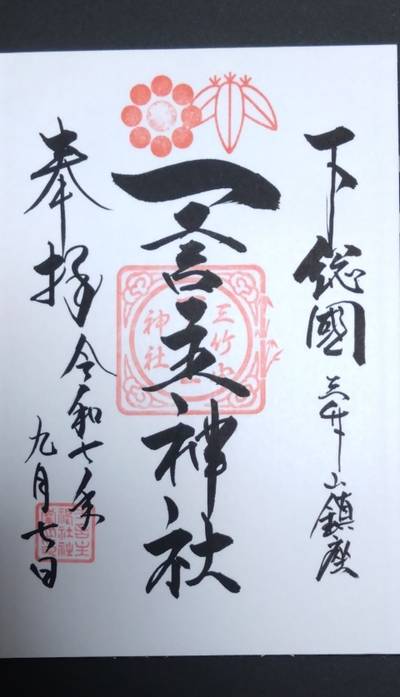 下総國
三竹山鎮座
一言主神社
三竹山
神社
奉拝
令和七年
九月七日